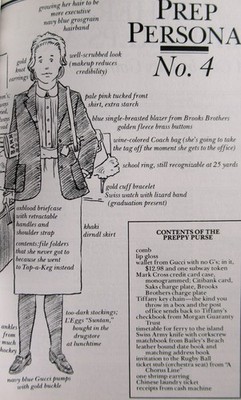 PREP
PERSONA
No. 4
growing her hair to be
more executive
navy blue grosgrain
hairband
gold
knot
earrings
well-scrubbed look
(makeup reduces
credibility)
pale pink tucked front
shirt, extra starch
blue single-breasted blazer from Brooks Brothers
golden fleece brass buttons
wine-colored Coach bag (she's going to take
the tag off the moment she gets to the office)
school ring, still recognizable at 25 yards
gold cuff bracelet
Swiss watch with lizard band
(graduation present)
oxblood briefcase
with retractable
handles and
shoulder strap
contents: file folders
that she never got to
because she went
to Tap-a-Keg instead
khaki
dirndl skirt
ankles
from
much
hockey
too-dark stockings;
L'Eggs "Suntan,"
bought in the
drugstore
at lunchtime
navy blue Gucci pumps
with gold buckle
CONTENTS OF THE
PREPPY PURSE
comb
lip gloss
wallet from Gucci with no G's; in it,
$12.98 and one subway token
Mark Cross credit card case,
monogrammed, Citibank card,
Saks charge plate, Brooks
Brothers charge plate
Tiffany key chain—the kind you
throw in a box and the post
office sends back to Tiffany's
checkbook from Morgan Guaranty
Trust
timetable for ferry to the island
Swiss Army knife with corkscrew
matchbook from Bailey's Beach
leather bound date book and
matching address book
invitation to the Rugby Ball
ticket stub (orchestra seat) from "A
Chorus Line"
one shrimp earring
Chinese laundry ticket
receipts from cash machine